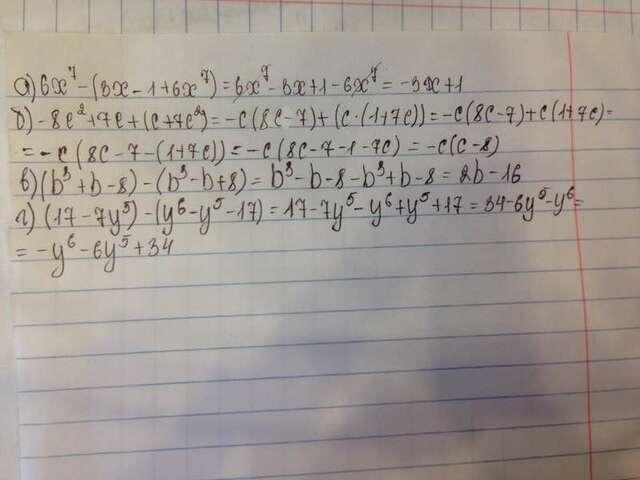 а) 6x⁷-(3x-1+6x⁷)=6x⁷-3x+1-6x⁷=-3x+1
б) -8c²+7c+(c+7c²)=-c(8c-7)+(c·(1+7c))=-c(8c-7)+c(1+7c)=
=-c(8c-7-(1+7c))=-c(8c-7-1-7c)=-c(c-8)
в) (b³+b-8)-(b³-b+8)=b³-b-8-b³+b-8=2b-16
г) (17-7y⁵)-(y⁶-y⁵-17)=17-7y⁵-y⁶+y⁵+17=34-6y⁵-y⁶=
=-y⁶-6y⁵+34